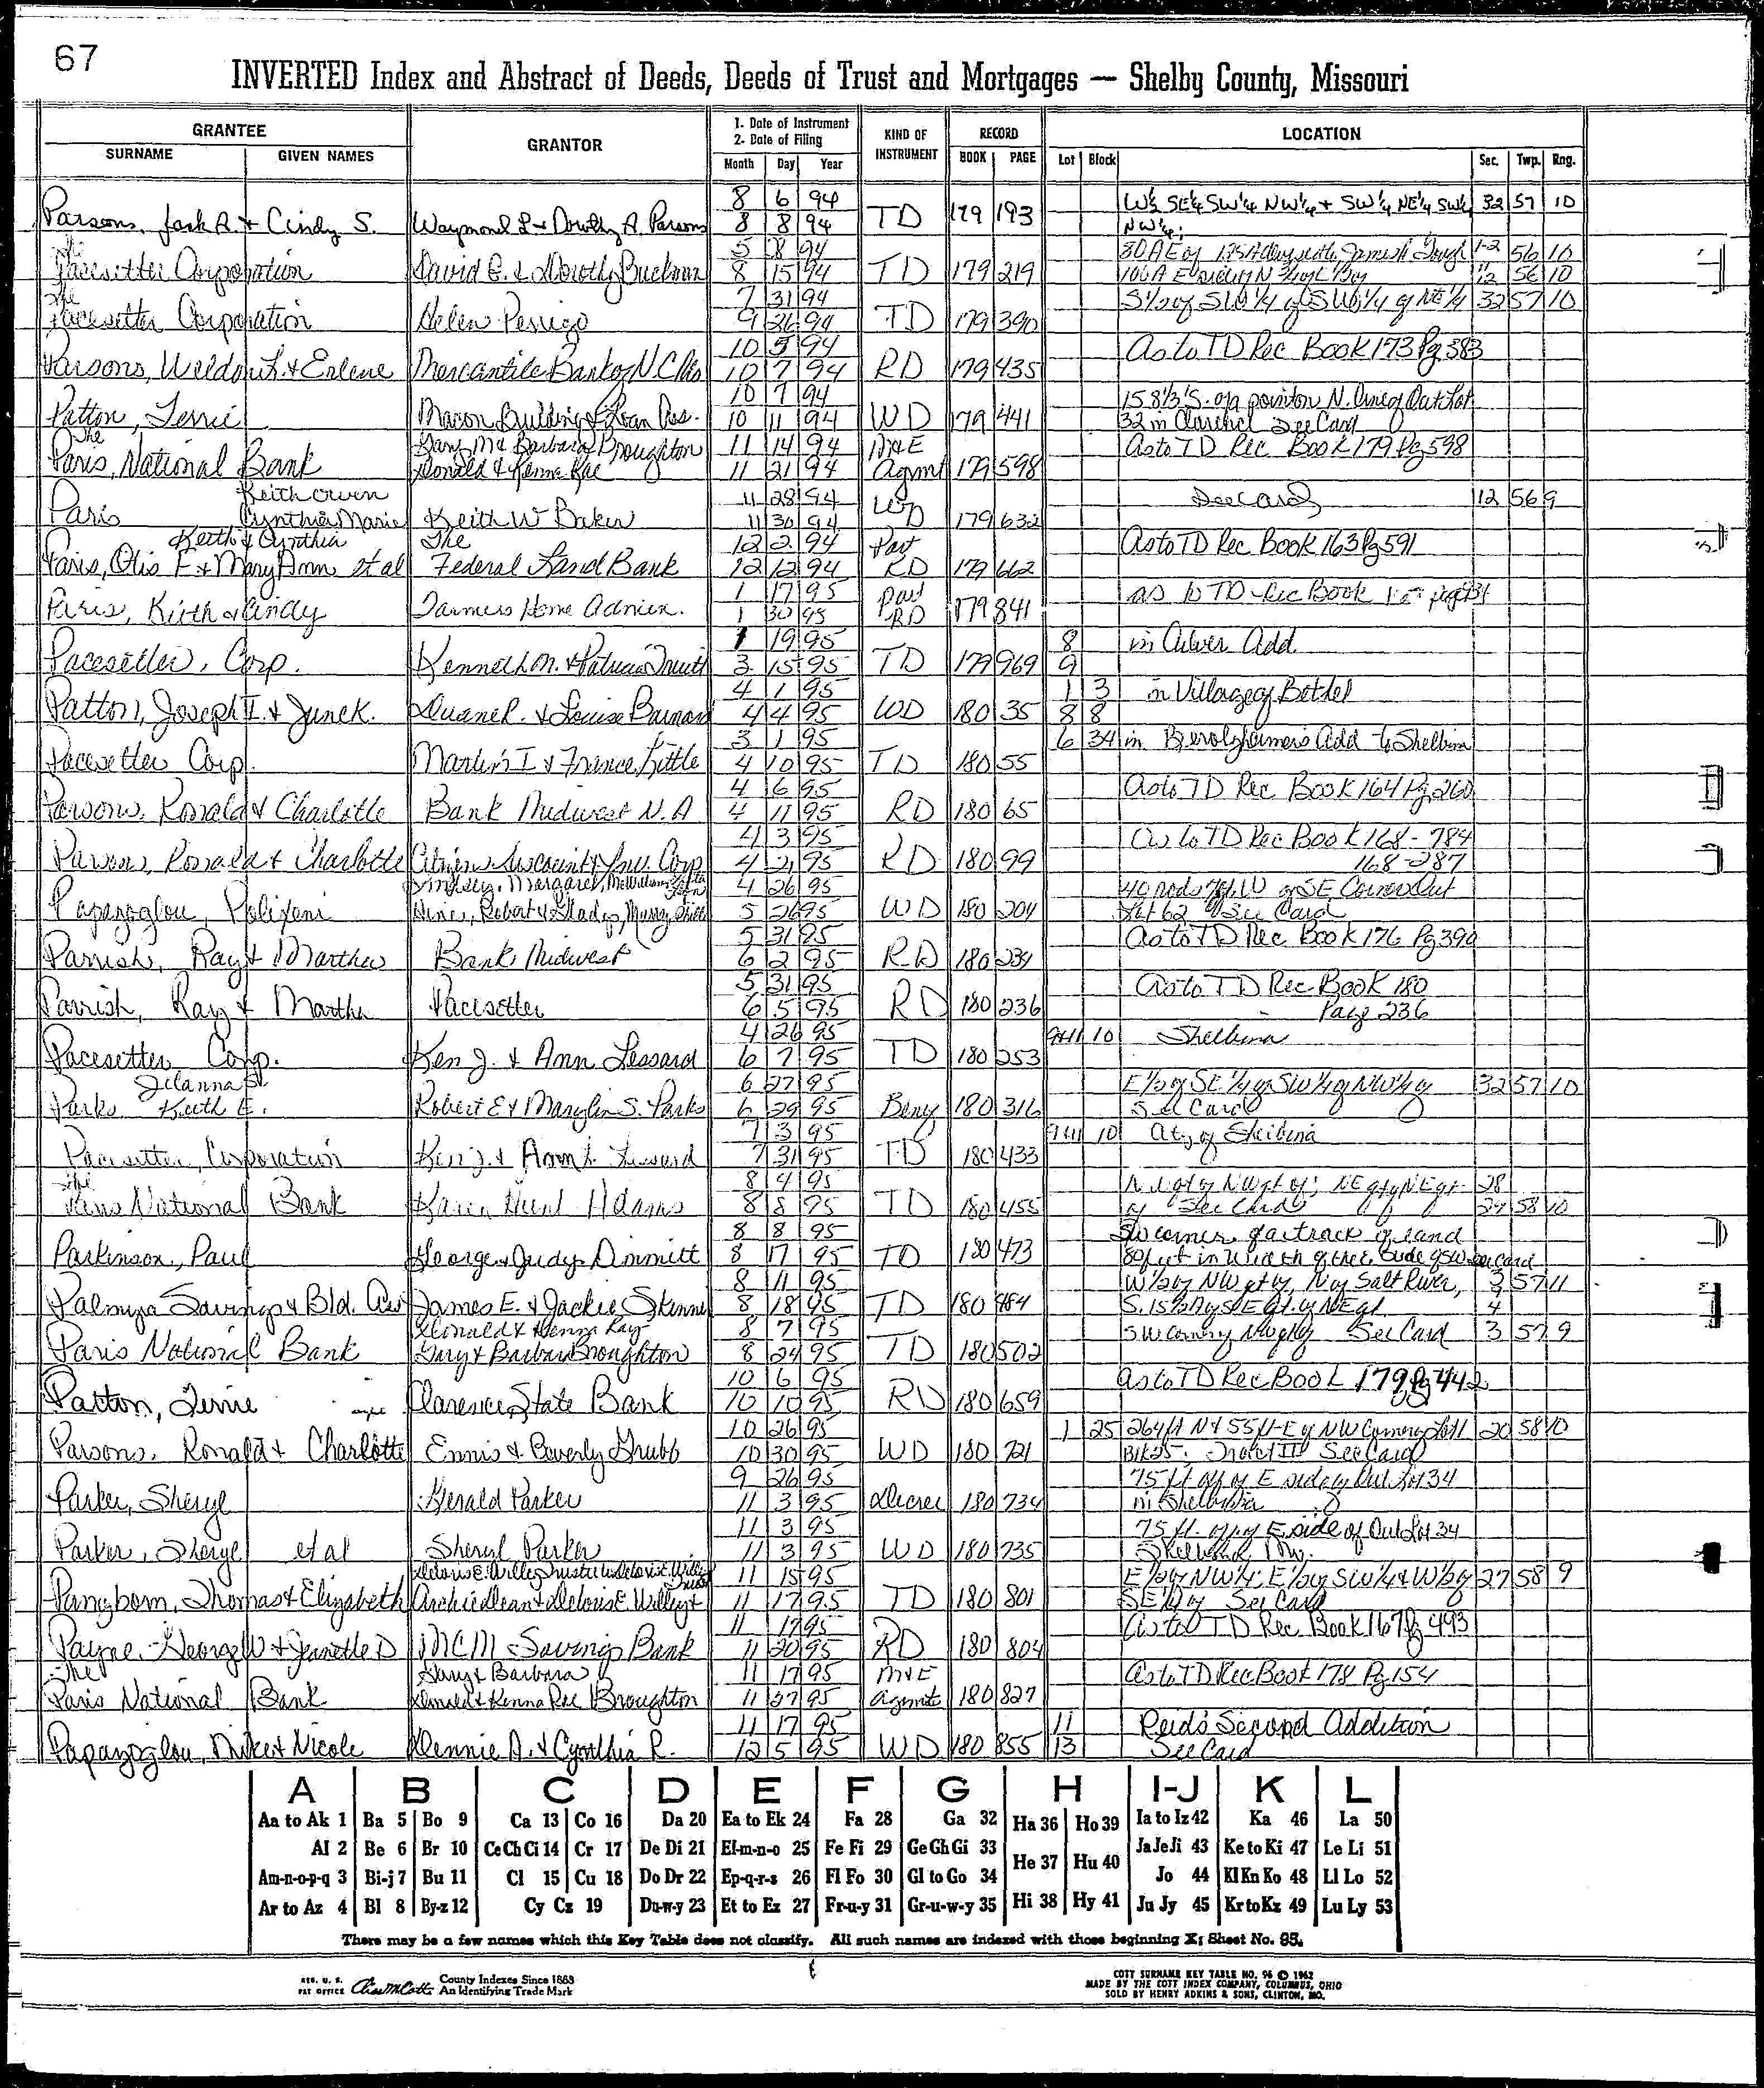 67
INVERTED Index and Abstract of Deeds, Deeds of Trust and Mortgages — Shelby County, Missouri
GRANTEE
SURNAME GIVEN NAMES
GRANTOR
1. Date of Instrument
2. Date of Filing
Month Day Year
KIND OF INSTRUMENT
RECORD
BOOK PAGE
LOCATION
Lot Block Sec. Twp. Rng.
8 6 94 W½ SE¼ SW¼ NW¼ + SW¼ NE¼ SW¼ 32 57 10
Parsons, Jack R. + Cindy S. Waymond L + Dorothy A. Parsons 8 8 94 TD 179 193 NW¼;
The 5 8 94 1-2 56 10
Pacesetter Corporation David G. & Dorothy Buckman 8 15 94 TD 179 219 12 56 10
The 7 31 94 S½ of SW¼ of SW¼ of NE¼ 32 57 10
Pacesetter Corporation Helen Perrigo 9 26 94 TD 179 390
10 5 94 As to TD Rec Book 173 Pg 383
Parsons, Weldon L. & Erlene Mercantile Bank of N.C. Mo 10 7 94 RD 179 435
10 7 94 158⅓' S. of a point on N. Line of Out Lot
Patton, Terrie Macon Building & Loan Ass. 10 11 94 WD 179 441 32 in Clarence See Card
The Gary M & Barbara Broughton 11 14 94 M&E As to TD Rec Book 179 Pg 598
Paris, National Bank Donald & Kenna Rae 11 21 94 Agmt 179 598
Keith Owen 11 28 94 See Card 12 56 9
Paris Cynthia Marie Keith W Baker 11 30 94 WD 179 632
Keith & Cynthia The 12 2 94 Part As to TD Rec Book 163 Pg 591
Paris, Otis F & Mary Ann et al Federal Land Bank 12 12 94 RD 179 662
1 17 95 Part as to TD Rec Book
Paris, Keith & Cindy Farmers Home Admin. 1 30 95 RD 179 841
1 19 95 8 in Culver Add
Pacesetter, Corp. Kenneth M. & Patricia Truitt 3 15 95 TD 179 969 9
4 1 95 1 3 in Village of Bethel
Patton, Joseph I. & June K. Duane R. & Louise Barnard 4 4 95 WD 180 35 8 8
3 1 95 6 34 in Berolzheimers Add to Shelbina
Pacesetter Corp. Martin I & France Kittle 4 10 95 TD 180 55
4 6 95 As to TD Rec Book 164 Pg 260
Parsons, Ronald & Charlotte Bank Midwest N.A 4 11 95 RD 180 65
4 3 95 As to TD Rec Book 168 - 784
168-287
Parsons, Ronald & Charlotte 4 21 95 RD 180 99
Lindsey, Margaret, McWilliams 4 26 95 40 rods W of SE Corner Out
Papazoglou, Polixeni Hines, Robert & Gladys, Murray 5 26 95 WD 180 204 Lot 62 See Card
5 31 95 As to TD Rec Book 176 Pg 390
Parrish, Ray & Martha Bank Midwest 6 2 95 RD 180 234
5 31 95 As to TD Rec Book 180
Parrish, Ray & Martha Pacesetter 6 5 95 RD 180 236 Page 236
4 26 95 9&11 10 Shelbina
Pacesetter Corp. Ken J. & Ann Lessard 6 7 95 TD 180 253
Jelanna S. 6 27 95 E½ of SE¼ of SW¼ of NW¼ of 32 57 10
Parks Keith E. Robert E & Marylin S. Parks 6 29 95 Beny 180 316 See Card
7 3 95 9&11 10 City of Shelbina
Pacesetter, Corporation Ken J. & Ann L. Lessard 7 31 95 TD 180 433
The 8 4 95 28
Paris National Bank Karen Hunt Adams 8 8 95 TD 180 455 See Card 27 58 10
8 8 95 SW corner of a track of land
Parkinson, Paul George & Judy Dimmitt 8 17 95 TD 180 473 80 feet in width of the E side of SW see card
8 11 95 W½ of NW qt of, N of Salt River, 3 57 11
Palmyra Savings & Bld. Ass James E. & Jackie Skinner 8 18 95 TD 180 484 S. 15½ A of SE qt. of NE qt 4
Donald & Kenna Ray 8 7 95 SW Corner of NW qt of See Card 3 57 9
Paris National Bank Gary & Barbara Broughton 8 24 95 TD 180 502
10 6 95 As to TD Rec Book 179 Pg 442
Patton, Terrie Clarence State Bank 10 10 95 RD 180 659
10 26 95 1 25 264 ft N & 55 ft E of NW Corner of Lot 1 20 58 10
Parsons, Ronald & Charlotte Ennis & Beverly Grubb 10 30 95 WD 180 721 Blk 25. Tract III See Card
9 26 95 75 ft off of E side of Out Lot 34
Parker, Sheryl Gerald Parker 11 3 95 Decree 180 734 in Shelbina
11 3 95 75 ft. off of E side of Out Lot 34
Parker, Sheryl et al Sheryl Parker 11 3 95 WD 180 735 Shelbina, Mo.
Deloris E. Willey Trustee 11 15 95 E½ of NW¼; E½ of SW¼ & W½ of 27 58 9
Pangborn, Thomas & Elizabeth Archie Dean & Deloris E. Willey 11 17 95 TD 180 801 SE¼ of See Card
11 17 95 As to TD Rec Book 167 Pg 493
Payne, George W & Jeanette D MCM Savings Bank 11 20 95 RD 180 804
The Gary & Barbara 11 17 95 M&E As to TD Rec Book 178 Pg 154
Paris National Bank Donald & Kenna Rae Broughton 11 27 95 Agmt 180 827
11 17 95 11 Reid's Second Addition
Papazoglou, Mike & Nicole Dennie A. & Cynthia R. 12 5 95 WD 180 855 13 See Card
A B C D E F G H I-J K L
Aa to Ak 1 Ba 5 Bo 9 Ca 13 Co 16 Da 20 Ea to Ek 24 Fa 28 Ga 32 Ha 36 Ho 39 Ia to Iz 42 Ka 46 La 50
Al 2 Be 6 Br 10 Ce Ch Ci 14 Cr 17 De Di 21 El-m-n-o 25 Fe Fi 29 Ge Gh Gi 33 He 37 Hu 40 Ja Je Ji 43 Ke to Ki 47 Le Li 51
Am-n-o-p-q 3 Bi-j 7 Bu 11 Cl 15 Cu 18 Do Dr 22 Ep-q-r-s 26 Fl Fo 30 Gl to Go 34 Jo 44 Kl Kn Ko 48 Ll Lo 52
Ar to Az 4 Bl 8 By-z 12 Cy Cz 19 Du-w-y 23 Et to Ez 27 Fr-u-y 31 Gr-u-w-y 35 Hi 38 Hy 41 Ju Jy 45 Kr to Kz 49 Lu Ly 53
There may be a few names which this Key Table does not classify. All such names are indexed with those beginning X; Sheet No. 95.
REG. U. S. PAT OFFICE
County Indexes Since 1863
An Identifying Trade Mark
COTT SURNAME KEY TABLE NO. 96 © 1962
MADE BY THE COTT INDEX COMPANY, COLUMBUS, OHIO
SOLD BY HENRY ADKINS & SONS, CLINTON, MO.